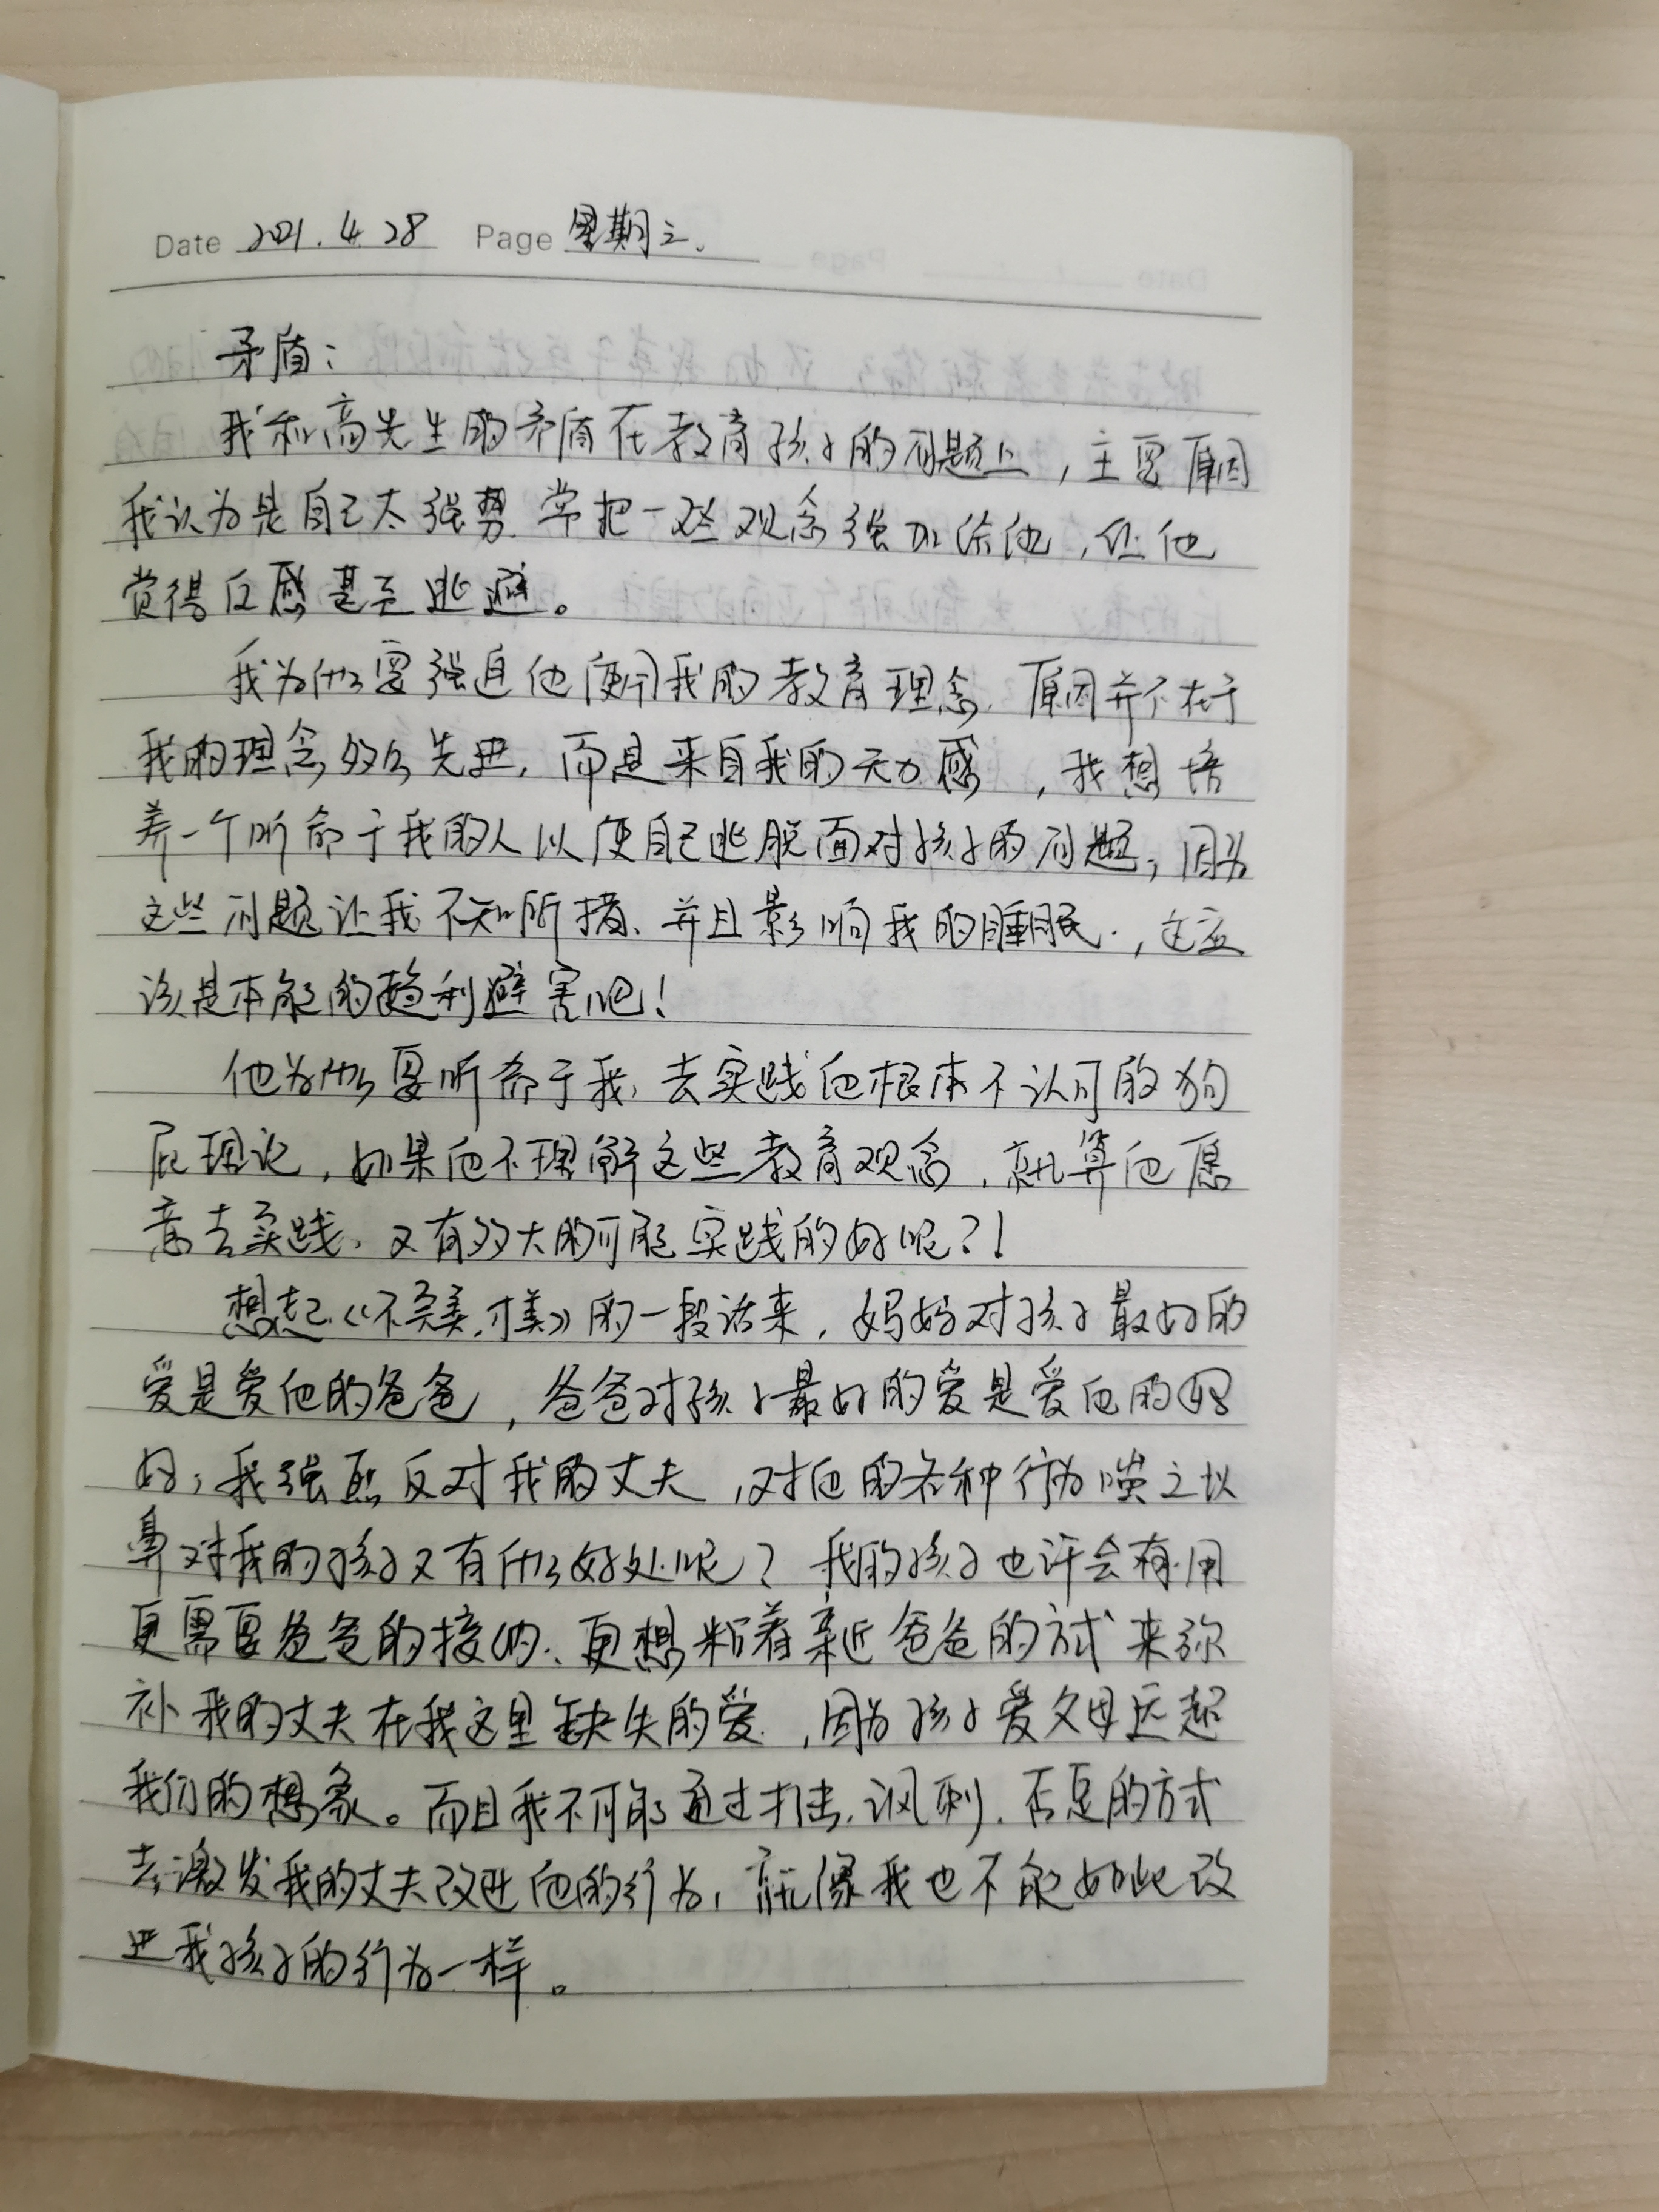 Date 2021.4 28 Page 星期三.
矛盾：
我和高先生的矛盾在教育孩子的问题上，主要原因
我认为是自己太强势.常把一些观念强加给他，让他
觉得反感甚至逃避。
我为什么要强迫他使用我的教育理念.原因并不在于
我的理念多么先进,而是来自我的无力感，我想培
养一个听命于我的人以便自己逃脱面对孩子的问题，因为
这些问题让我不知所措、并且影响我的睡眠.，这应
该是本能的趋利避害吧！
他为什么要听命于我,去实践他根本不认可的狗
屁理论，如果他不理解这些教育观念，就算他愿
意去实践、又有多大的可能实践的好呢？！
想起《不完美,才美》的一段话来，妈妈对孩子最好的
爱是爱他的爸爸，爸爸对孩子最好的爱是爱他的妈
妈，我强烈反对我的丈夫，对他的各种行为嗤之以
鼻对我的孩子又有什么好处呢？我的孩子也许会有用
更需要爸爸的接纳、更想粘着亲近爸爸的方式来弥
补我的丈夫在我这里缺失的爱，因为孩子爱父母远超
我们的想象。而且我不可能通过打击.讽刺.否定的方式
去激发我的丈夫改进他的行为，就像我也不能如此改
进我孩子的行为一样。